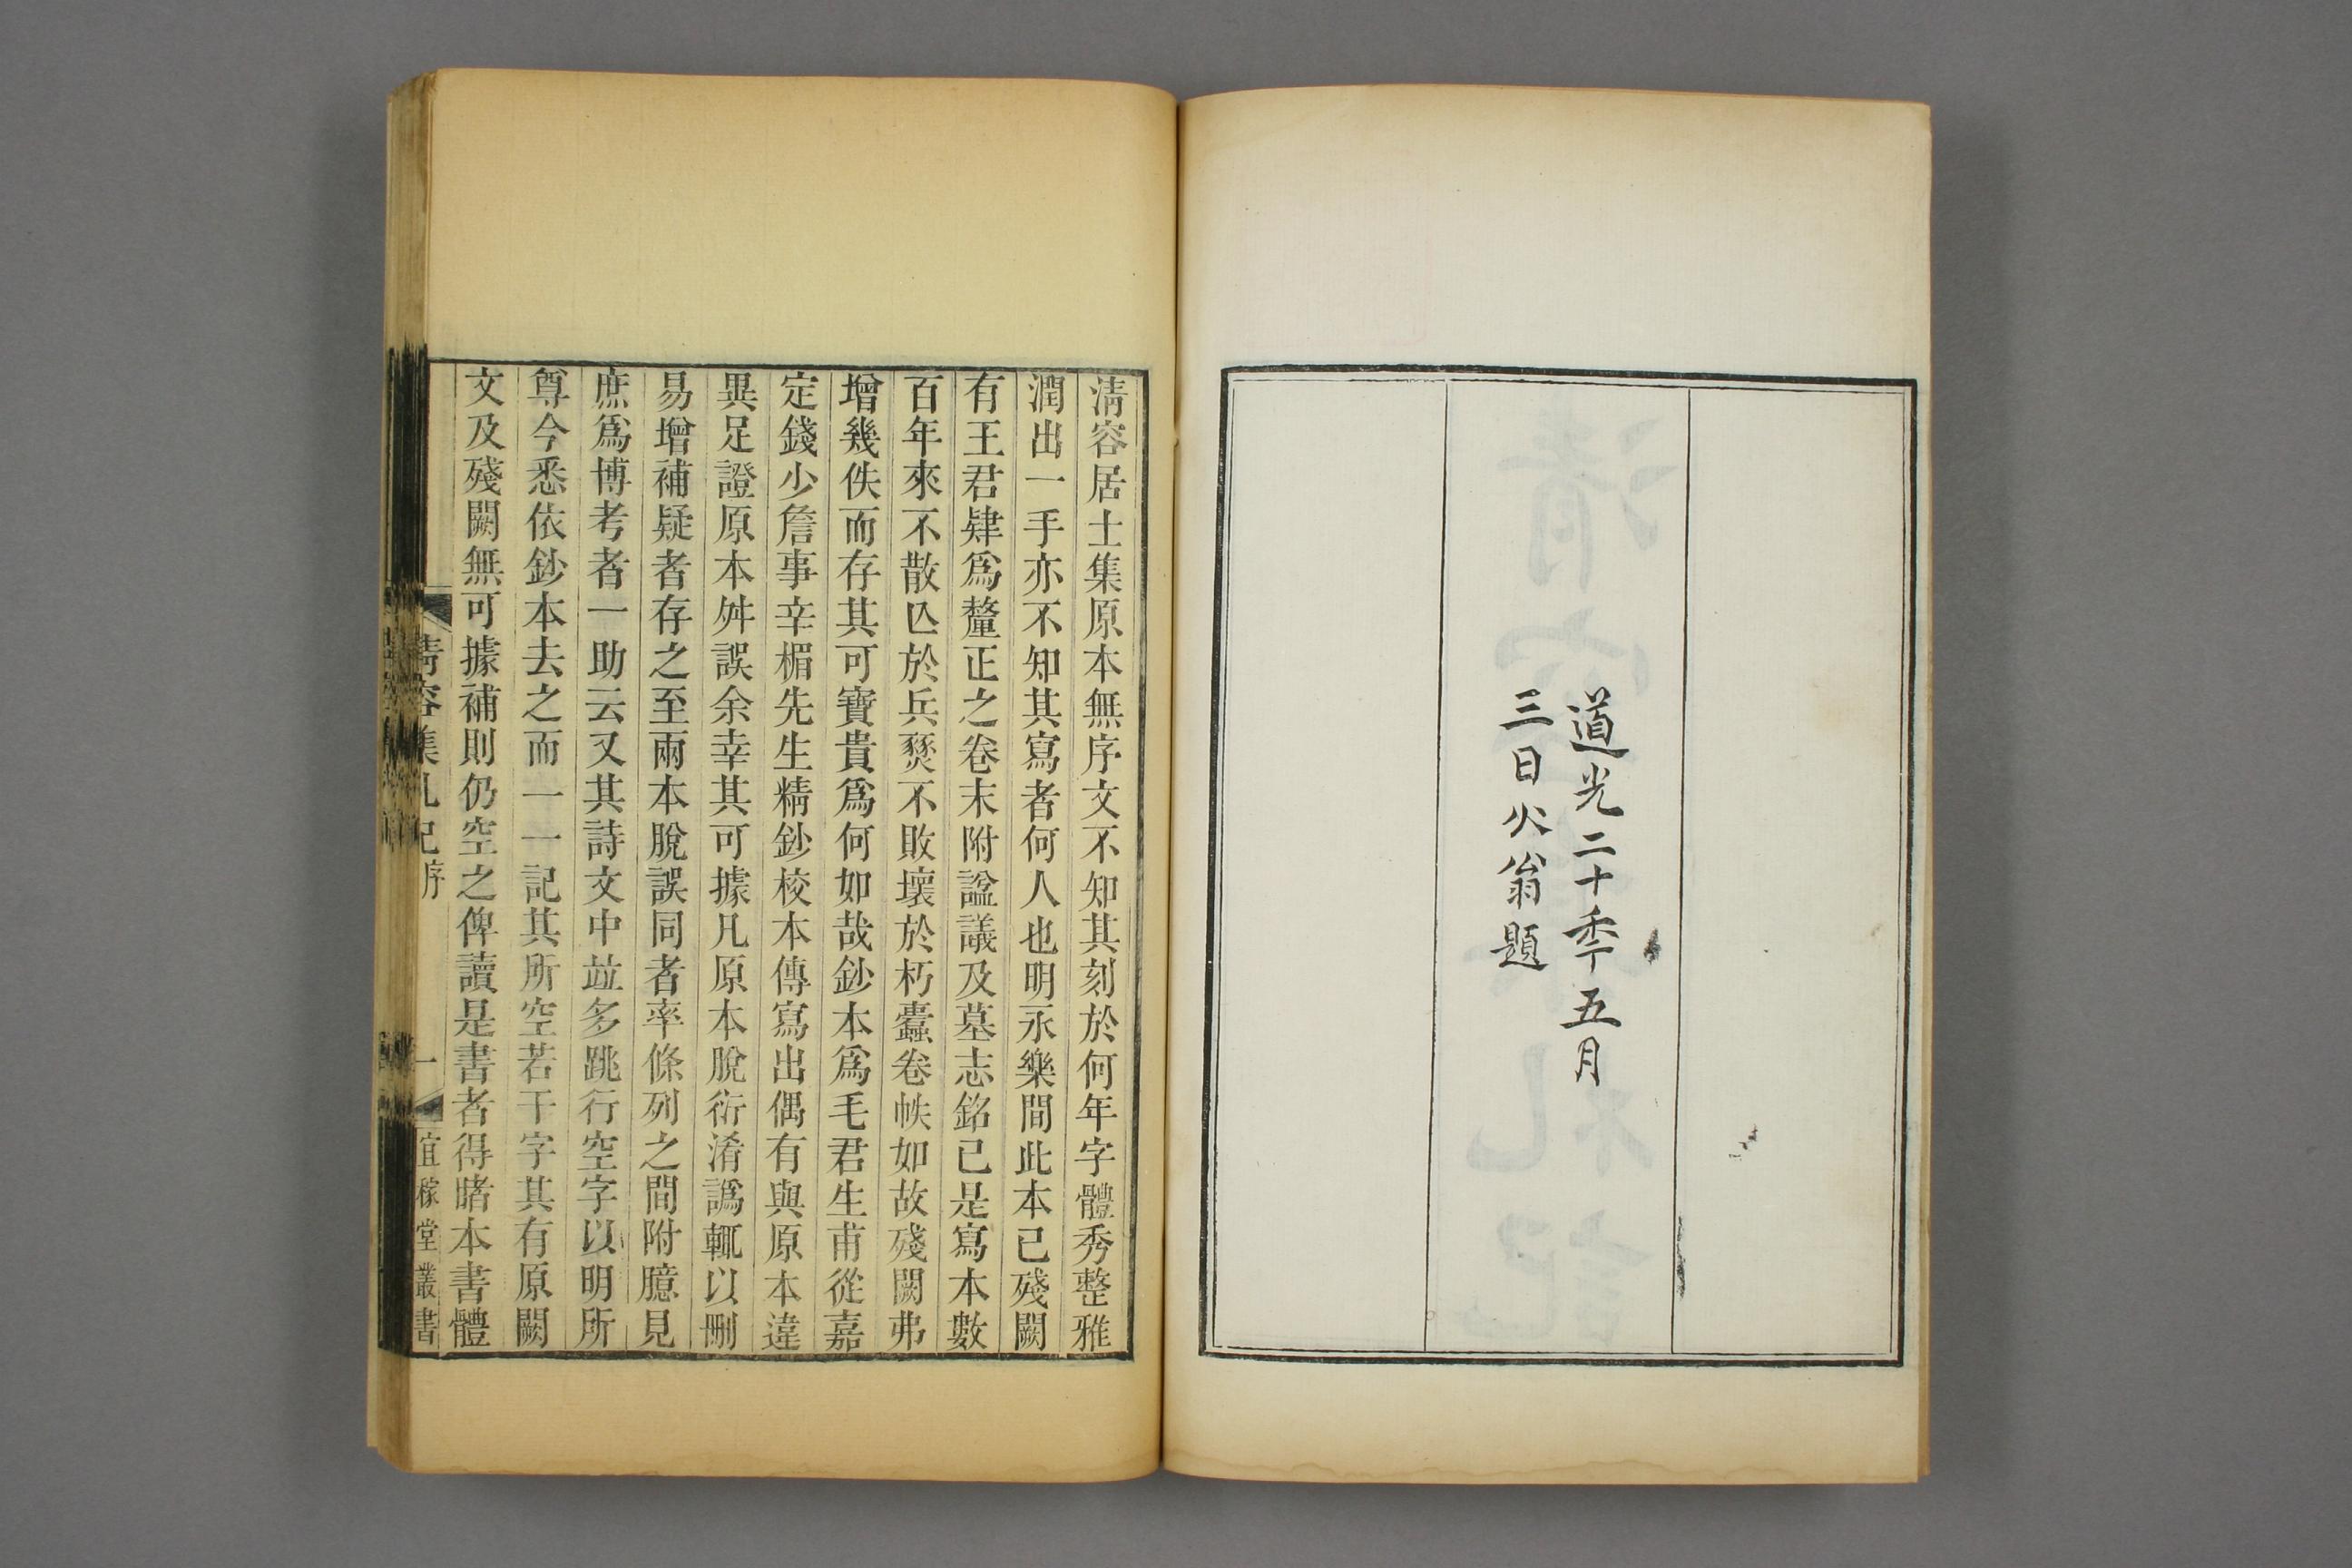 道光二十秊五月
三日火翁題
清容居士集原本無序文不知其刻於何年字體秀整雅
潤出一手亦不知其寫者何人也明永樂間此本已殘闕
有王君肄爲釐正之卷末附諡議及墓志銘已是寫本數
百年來不散亾於兵燹不敗壞於朽蠹卷帙如故殘闕弗
增幾佚而存其可寶貴爲何如哉鈔本爲毛君生甫從嘉
定錢少詹事辛楣先生精鈔校本傳寫出偶有與原本違
異足證原本舛誤余幸其可據凡原本脫衍淆譌輒以刪
易增補疑者存之至兩本脫誤同者率條列之間附臆見
庶爲博考者一助云又其詩文中竝多跳行空字以明所
尊今悉依鈔本去之而一一記其所空若干字其有原闕
文及殘闕無可據補則仍空之俾讀是書者得睹本書體
清容集札記序
一
宜稼堂叢書